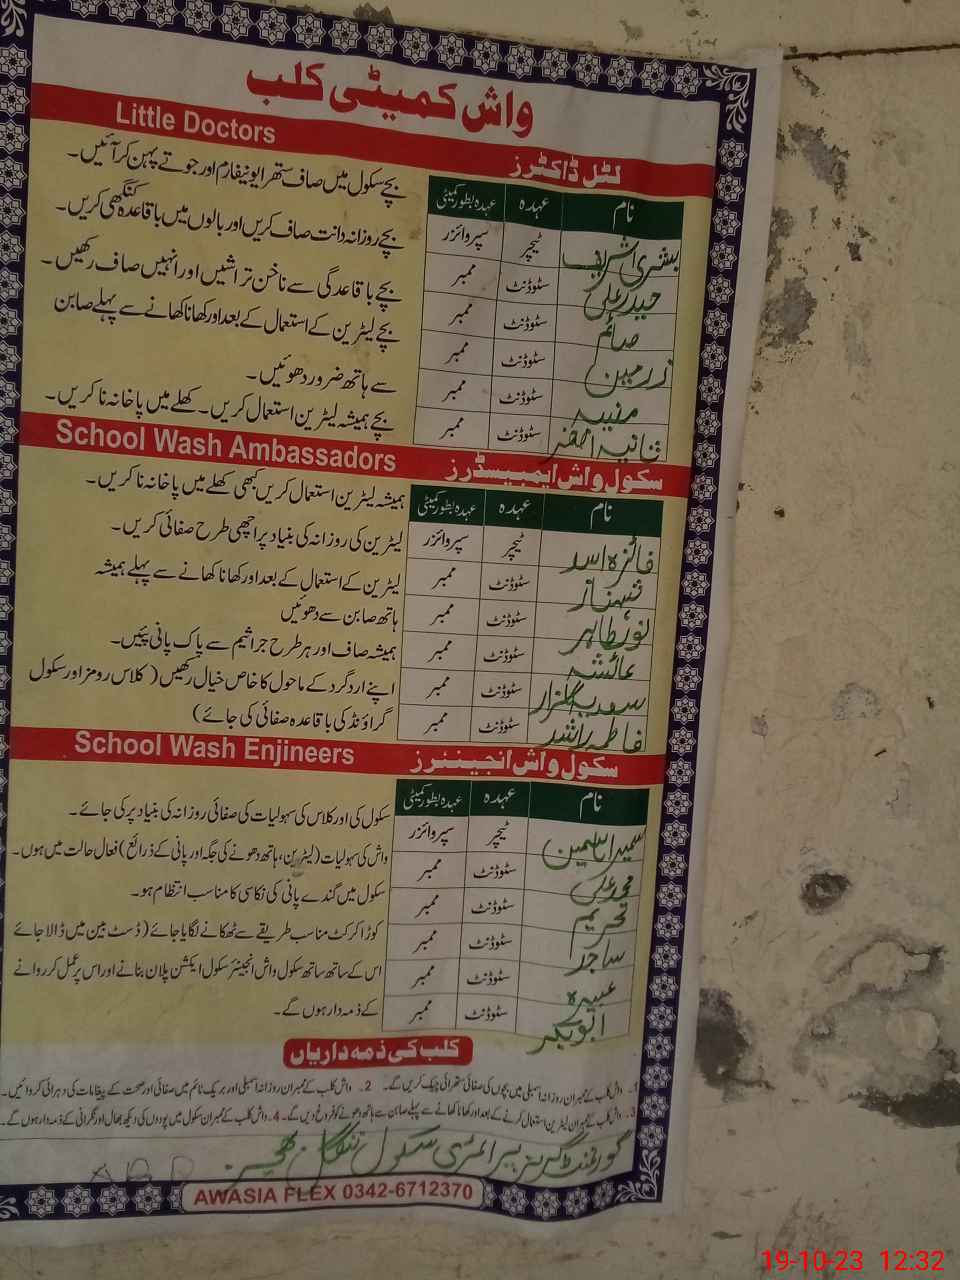 واش کمیٹی کلب
Little Doctors لٹل ڈاکٹرز
بچے سکول میں صاف ستھرا یونیفارم اور جوتے پہن کر آئیں۔
بچے روزانہ دانت صاف کریں اور بالوں میں باقاعدہ کنگھی کریں۔
بچے باقاعدگی سے ناخن تراشیں اور انہیں صاف رکھیں۔
بچے لیٹرین کے استعمال کے بعد اور کھانا کھانے سے پہلے صابن
سے ہاتھ ضرور دھوئیں۔
بچے ہمیشہ لیٹرین استعمال کریں۔ کھلے میں پاخانہ نا کریں۔
نام عہدہ عہدہ بطور کمیٹی
بشری اشرف ٹیچر سپروائزر
حیدر علی سٹوڈنٹ ممبر
صائم سٹوڈنٹ ممبر
زرمین سٹوڈنٹ ممبر
منیبہ سٹوڈنٹ ممبر
ثانیہ سٹوڈنٹ ممبر
School Wash Ambassadors سکول واش ایمبیسڈرز
ہمیشہ لیٹرین استعمال کریں کبھی کھلے میں پاخانہ نا کریں۔
لیٹرین کی روزانہ کی بنیاد پر اچھی طرح صفائی کریں۔
لیٹرین کے استعمال کے بعد اور کھانا کھانے سے پہلے ہمیشہ
ہاتھ صابن سے دھوئیں
ہمیشہ صاف اور ہر طرح جراثیم سے پاک پانی پئیں۔
اپنے ارد گرد کے ماحول کا خاص خیال رکھیں (کلاس رومز اور سکول
گراؤنڈ کی باقاعدہ صفائی کی جائے)
نام عہدہ عہدہ بطور کمیٹی
فائزہ اسد ٹیچر سپروائزر
شہناز سٹوڈنٹ ممبر
نور طاہر سٹوڈنٹ ممبر
عائشہ سٹوڈنٹ ممبر
سعدیہ گلزار سٹوڈنٹ ممبر
فاطمہ راشد سٹوڈنٹ ممبر
School Wash Enjineers سکول واش انجینئرز
سکول کی اور کلاس کی سہولیات کی صفائی روزانہ کی بنیاد پر کی جائے۔
واش کی سہولیات (لیٹرین، ہاتھ دھونے کی جگہ اور پانی کے ذرائع) فعال حالت میں ہوں۔
سکول میں گندے پانی کی نکاسی کا مناسب انتظام ہو۔
کوڑا کرکٹ مناسب طریقے سے ٹھکانے لگایا جائے (ڈسٹ بین میں ڈالا جائے
اس کے ساتھ ساتھ سکول واش انجینئر سکول ایکشن پلان بنانے اور اس پر عمل کروانے
کے ذمہ دار ہوں گے۔
نام عہدہ عہدہ بطور کمیٹی
سمیرا یاسمین ٹیچر سپروائزر
محمد علی سٹوڈنٹ ممبر
تحریم سٹوڈنٹ ممبر
ساجد سٹوڈنٹ ممبر
عبیرہ سٹوڈنٹ ممبر
ابوبکر سٹوڈنٹ ممبر
کلب کی ذمہ داریاں
1۔ واش کلب کے ممبران روزانہ اسمبلی میں بچوں کی صفائی ستھرائی چیک کریں گے۔ 2۔ واش کلب کے ممبران روزانہ اسمبلی اور بریک ٹائم میں صفائی اور صحت کے پیغامات کی دہرائی کروائیں۔
3۔ واش کلب کے ممبران لیٹرین استعمال کرنے کے بعد اور کھانا کھانے سے پہلے صابن سے ہاتھ دھونے کو فروغ دیں گے۔ 4۔ واش کلب کے ممبران سکول میں پودوں کی دیکھ بھال اور نگرانی کے ذمہ دار ہوں گے۔
گورنمنٹ گرلز پرائمری سکول
AWASIA FLEX 0342-6712370
19-10-23 12:32